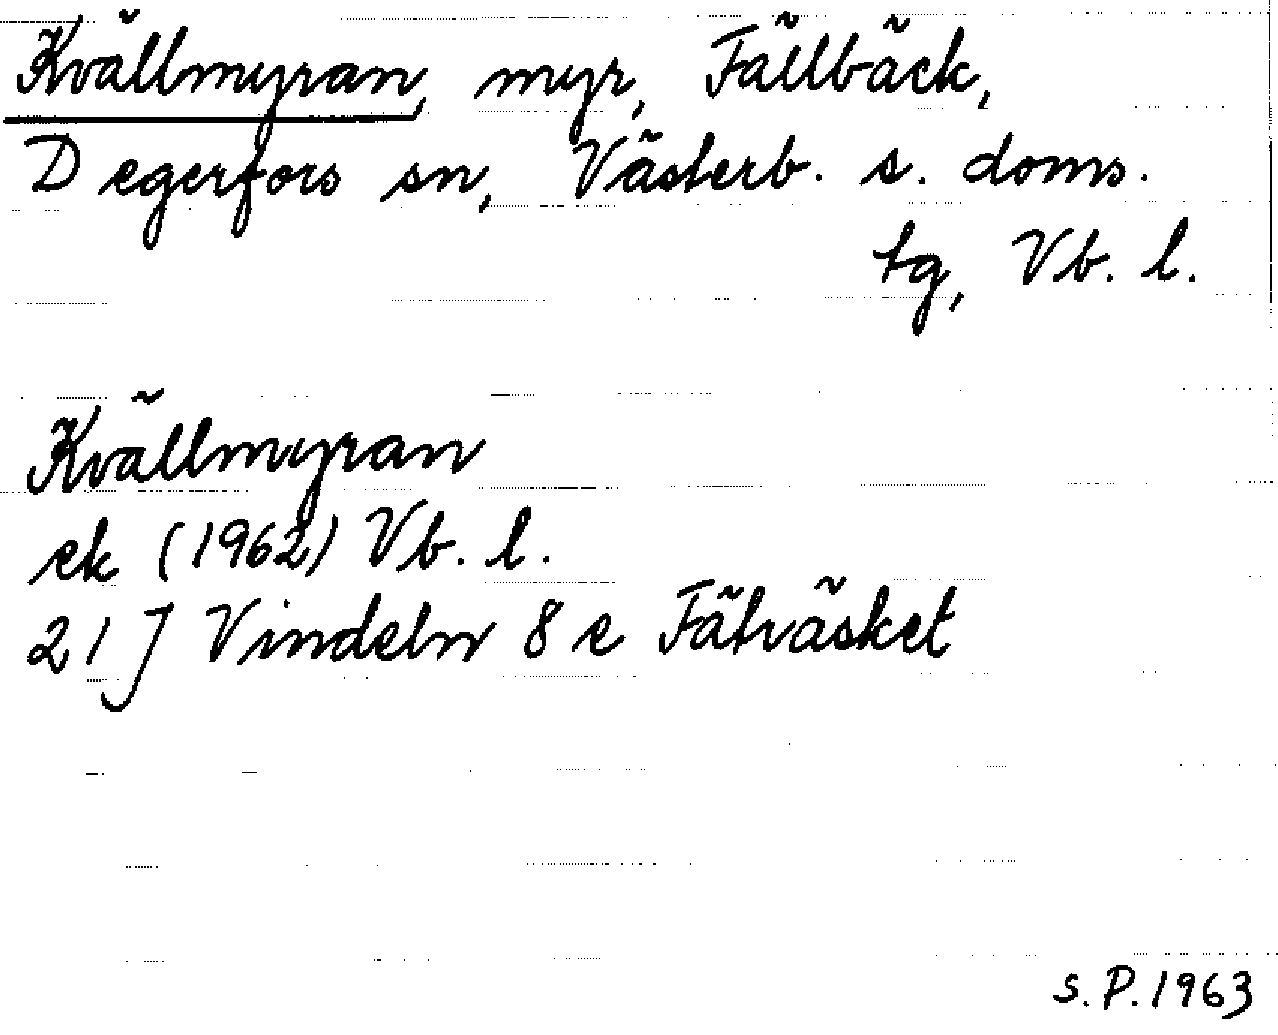 Kvällmyran, myr, Fällbäck,
Degerfors sn, Västerb. s. doms.
tg, Vb. l.
Kvällmyran
ek (1962) Vb. l.
21 J Vindeln 8 e Fäträsket
S. P. 1963